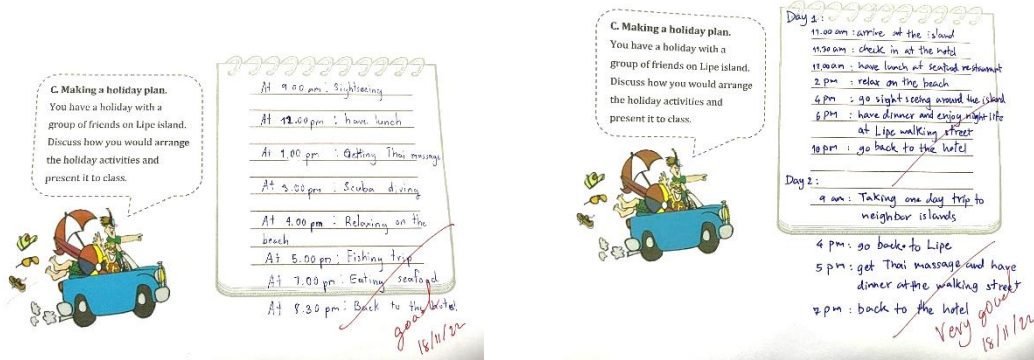 C. Making a holiday plan.
You have a holiday with a
group of friends on Lipe island.
Discuss how you would arrange
the holiday activities and
present it to class.
At 9.00 am : Sightseeing
At 12.00 pm : have lunch
At 1.00 pm : Getting Thai massage
At 3.00 pm : Scuba diving
At 4.00 pm : Relaxing on the
beach
At 5.00 pm : Fishing trip
At 7.00 pm : Eating seafood
At 8.30 pm : Back to the hotel.
good
18/11/22
C. Making a holiday plan.
You have a holiday with a
group of friends on Lipe island.
Discuss how you would arrange
the holiday activities and
present it to class.
Day 1 :
11.00 am : arrive at the island
11.30 am : check in at the hotel
12.00 am : have lunch at seafood restaurant
2 pm : relax on the beach
4 pm : go sight seeing around the island
6 pm : have dinner and enjoy night life
at Lipe walking street
10 pm : go back to the hotel
Day 2 :
9 am : Taking one day trip to
neighbor islands
4 pm : go back to Lipe
5 pm : get Thai massage and have
dinner at the walking street
7 pm : back to the hotel
Very good
18/11/22